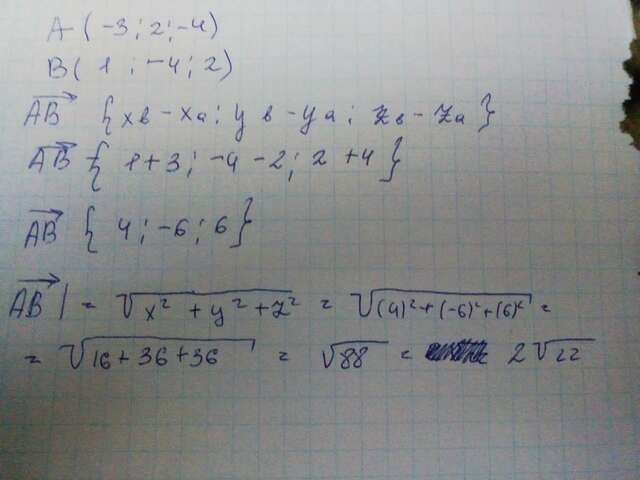 A (-3; 2; -4)
B( 1 ; -4; 2)
AB {xв - xa; yв - ya; zв - za}
AB {1+3; -4-2; 2+4}
AB {4; -6; 6}
AB| = √x² + y² + z² = √(4)² + (-6)² + (6)² =
= √16 + 36 + 36 = √88 = 2√22